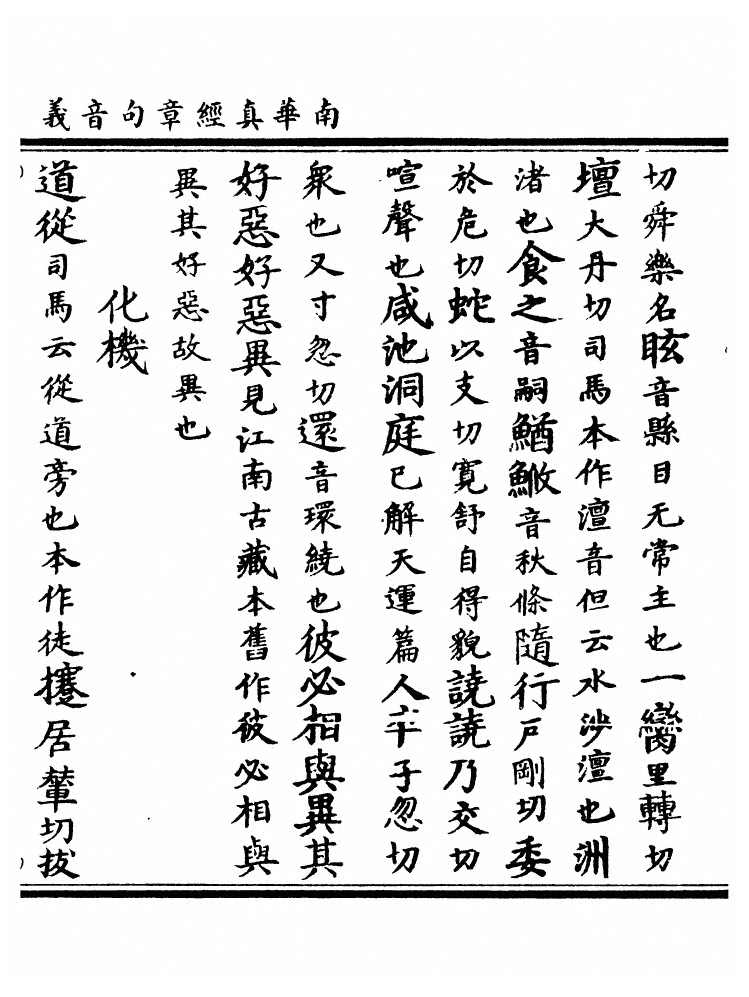 南華真經章句音義
切舜樂名眩音縣目无常主也一臠里轉切
壇大丹切司馬本作澶音但云水沙澶也洲
渚也食之音嗣鰌鮍音秋條隨行戶剛切委
於危切蛇以支切寬舒自得貌譊譊乃交切
喧聲也咸池洞庭已解天運篇人卒子忽切
衆也又寸忽切還音環繞也彼必相與異其
好惡好惡異見江南古藏本舊作彼必相與
異其好惡故異也
化機
道從司馬云從道旁也本作徒攓居輦切拔